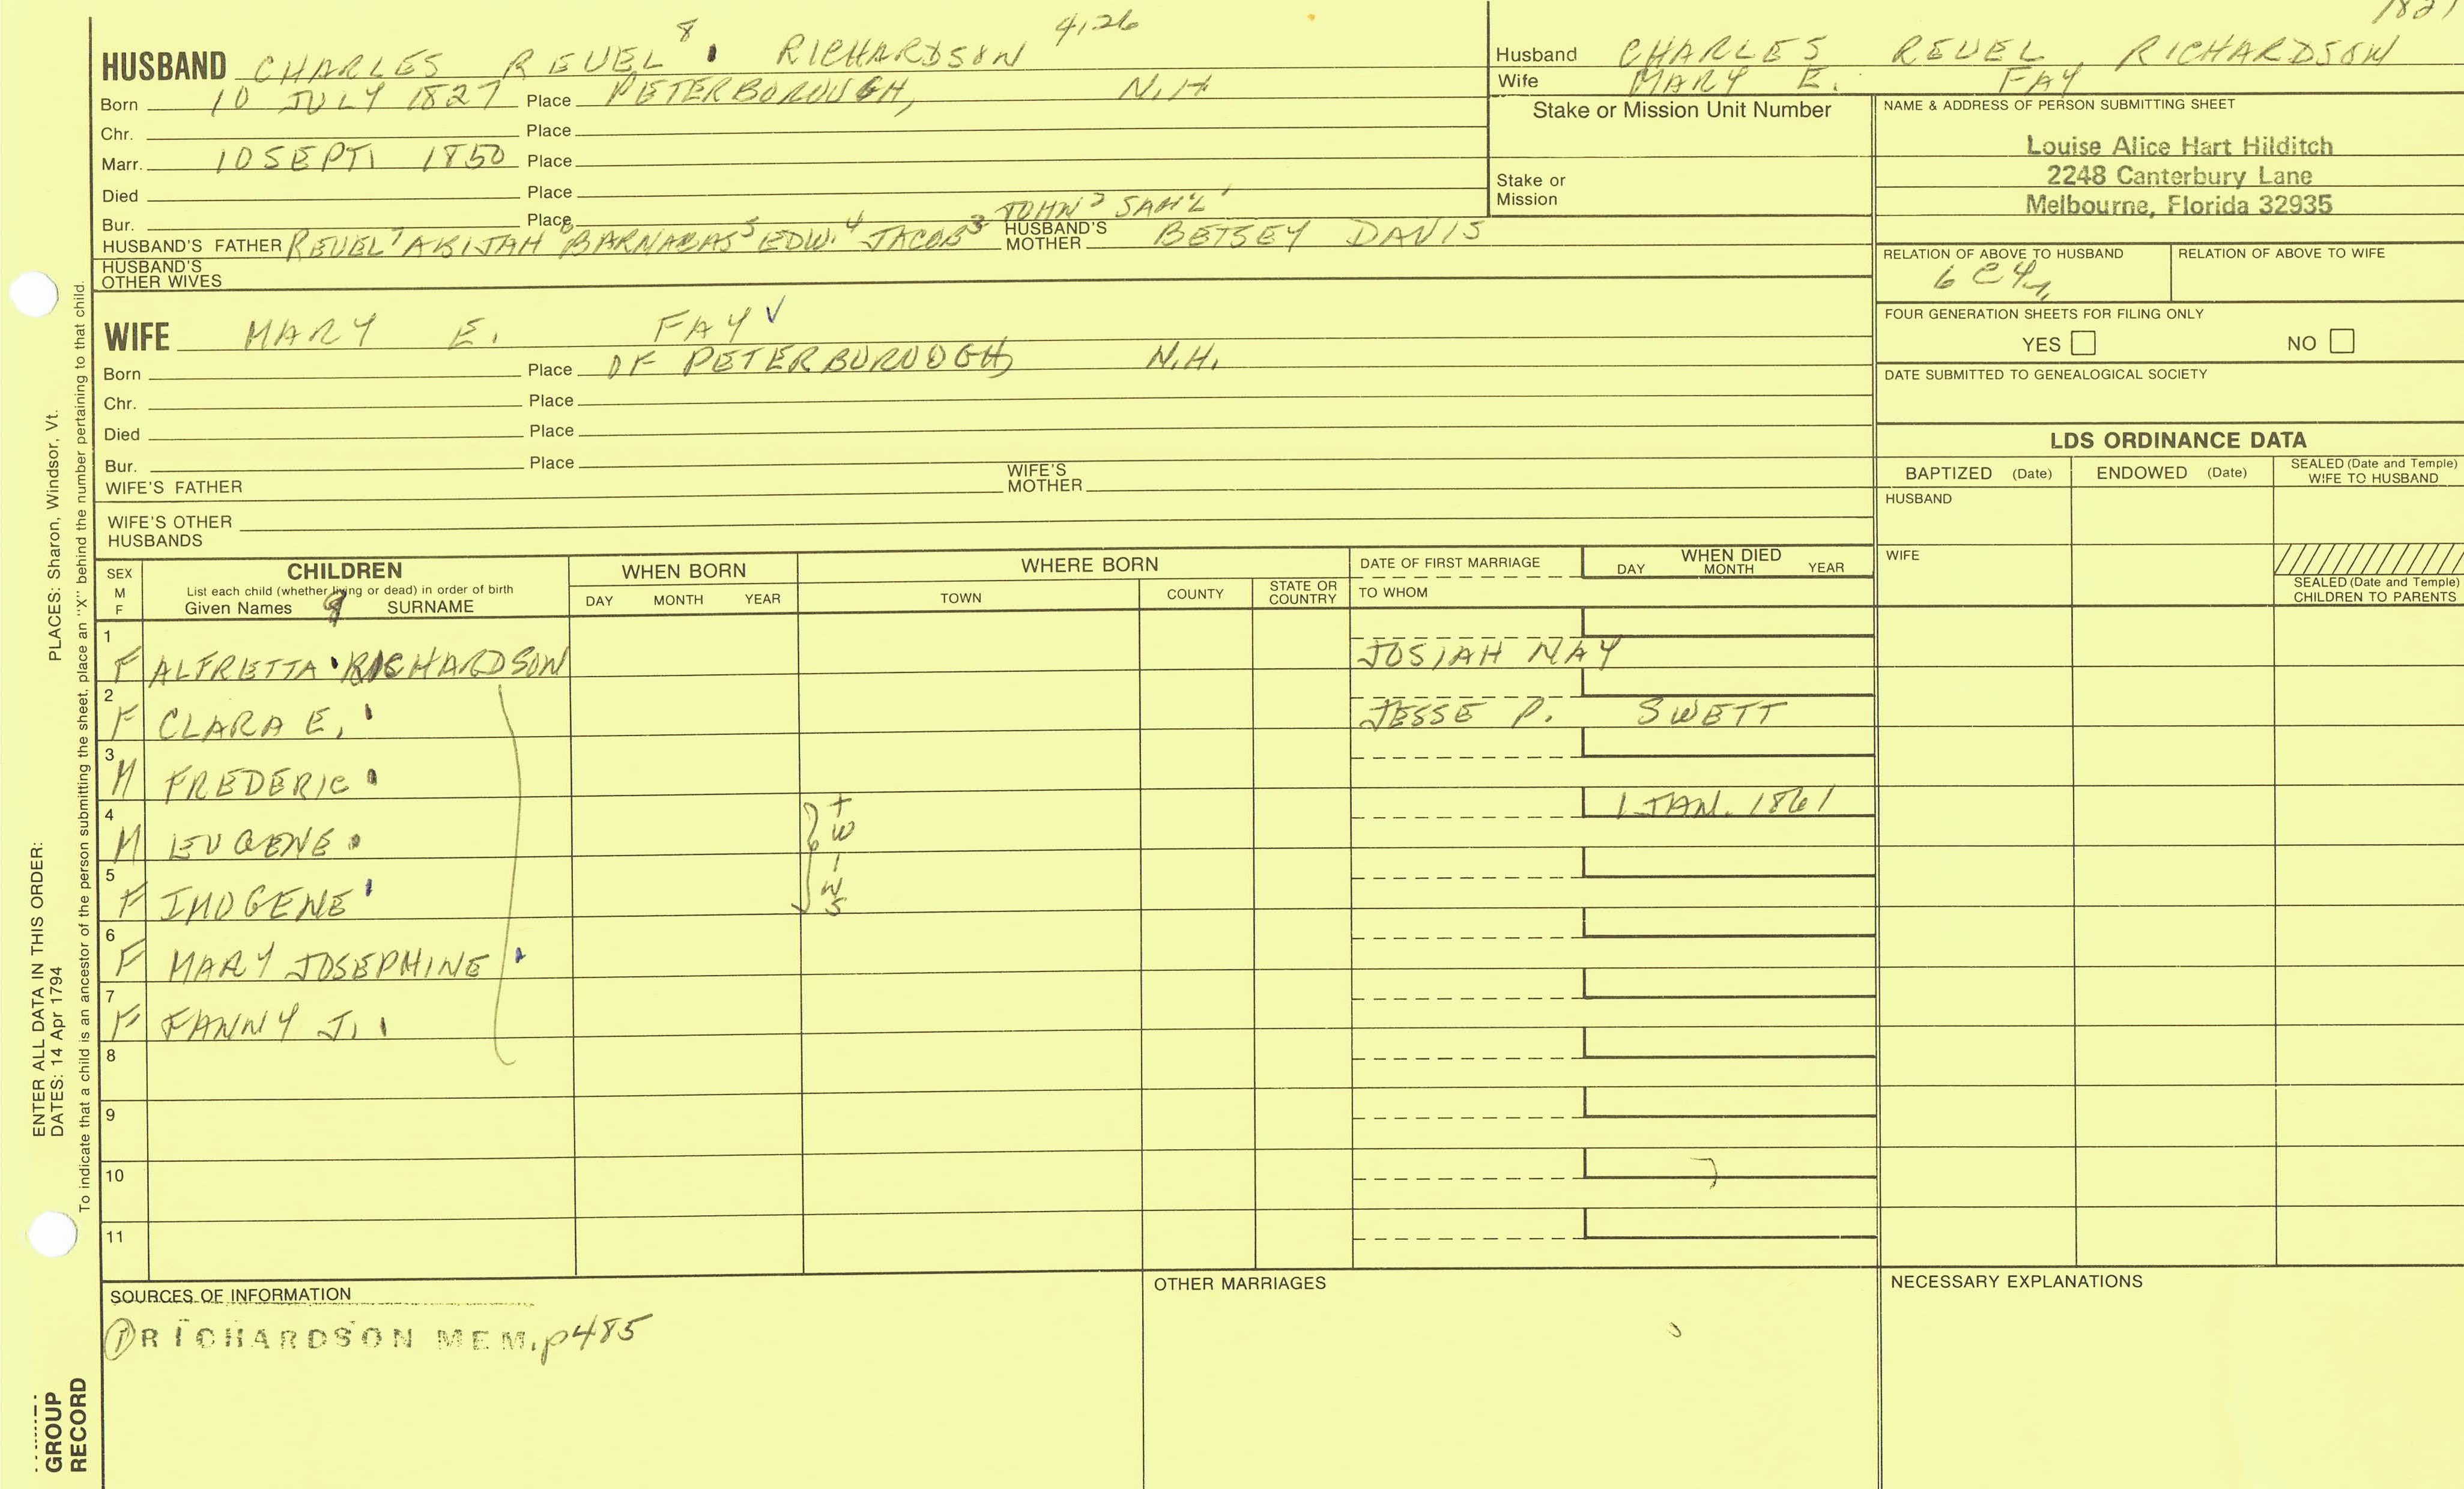 HUSBAND CHARLES REUEL 8 RICHARDSON 4,26
Born 10 JULY 1827 Place PETERBOROUGH, N.H
Chr. Place
Marr. 10 SEPT. 1850 Place
Died Place
Bur. Place
JOHN 2 SAM'L 1
HUSBAND'S FATHER REUEL 7 ABIJAH 6 BARNABAS 5 EDW. 4 JACOB 3 HUSBAND'S MOTHER BETSEY DAVIS
HUSBAND'S OTHER WIVES
WIFE MARY E. FAY
Born Place OF PETERBUROUGH N.H.
Chr. Place
Died Place
Bur. Place
WIFE'S FATHER WIFE'S MOTHER
WIFE'S OTHER HUSBANDS
1827
Husband CHARLES REUEL RICHARDSON
Wife MARY E. FAY
Stake or Mission Unit Number
Stake or Mission
NAME & ADDRESS OF PERSON SUBMITTING SHEET
Louise Alice Hart Hilditch
2248 Canterbury Lane
Melbourne, Florida 32935
RELATION OF ABOVE TO HUSBAND RELATION OF ABOVE TO WIFE
6C4
FOUR GENERATION SHEETS FOR FILING ONLY
YES NO
DATE SUBMITTED TO GENEALOGICAL SOCIETY
LDS ORDINANCE DATA
BAPTIZED (Date) ENDOWED (Date) SEALED (Date and Temple) WIFE TO HUSBAND
HUSBAND
WIFE
SEALED (Date and Temple) CHILDREN TO PARENTS
SEX M F
CHILDREN
List each child (whether living or dead) in order of birth
Given Names SURNAME
9
WHEN BORN
DAY MONTH YEAR
WHERE BORN
TOWN COUNTY STATE OR COUNTRY
DATE OF FIRST MARRIAGE
TO WHOM
WHEN DIED
DAY MONTH YEAR
1 F ALFRETTA RICHARDSON JOSIAH NAY
2 F CLARA E. JESSE P. SWETT
3 M FREDERIC
4 M EUGENE 1 JAN. 1861
TWINS
5 F IMOGENE
6 F MARY JOSEPHINE
7 F FANNY J.
8
9
10
11
SOURCES OF INFORMATION
1 RICHARDSON MEM. p485
OTHER MARRIAGES
NECESSARY EXPLANATIONS
ENTER ALL DATA IN THIS ORDER:
DATES: 14 Apr 1794 PLACES: Sharon, Windsor, Vt.
To indicate that a child is an ancestor of the person submitting the sheet, place an "X" behind the number pertaining to that child.
GROUP
RECORD